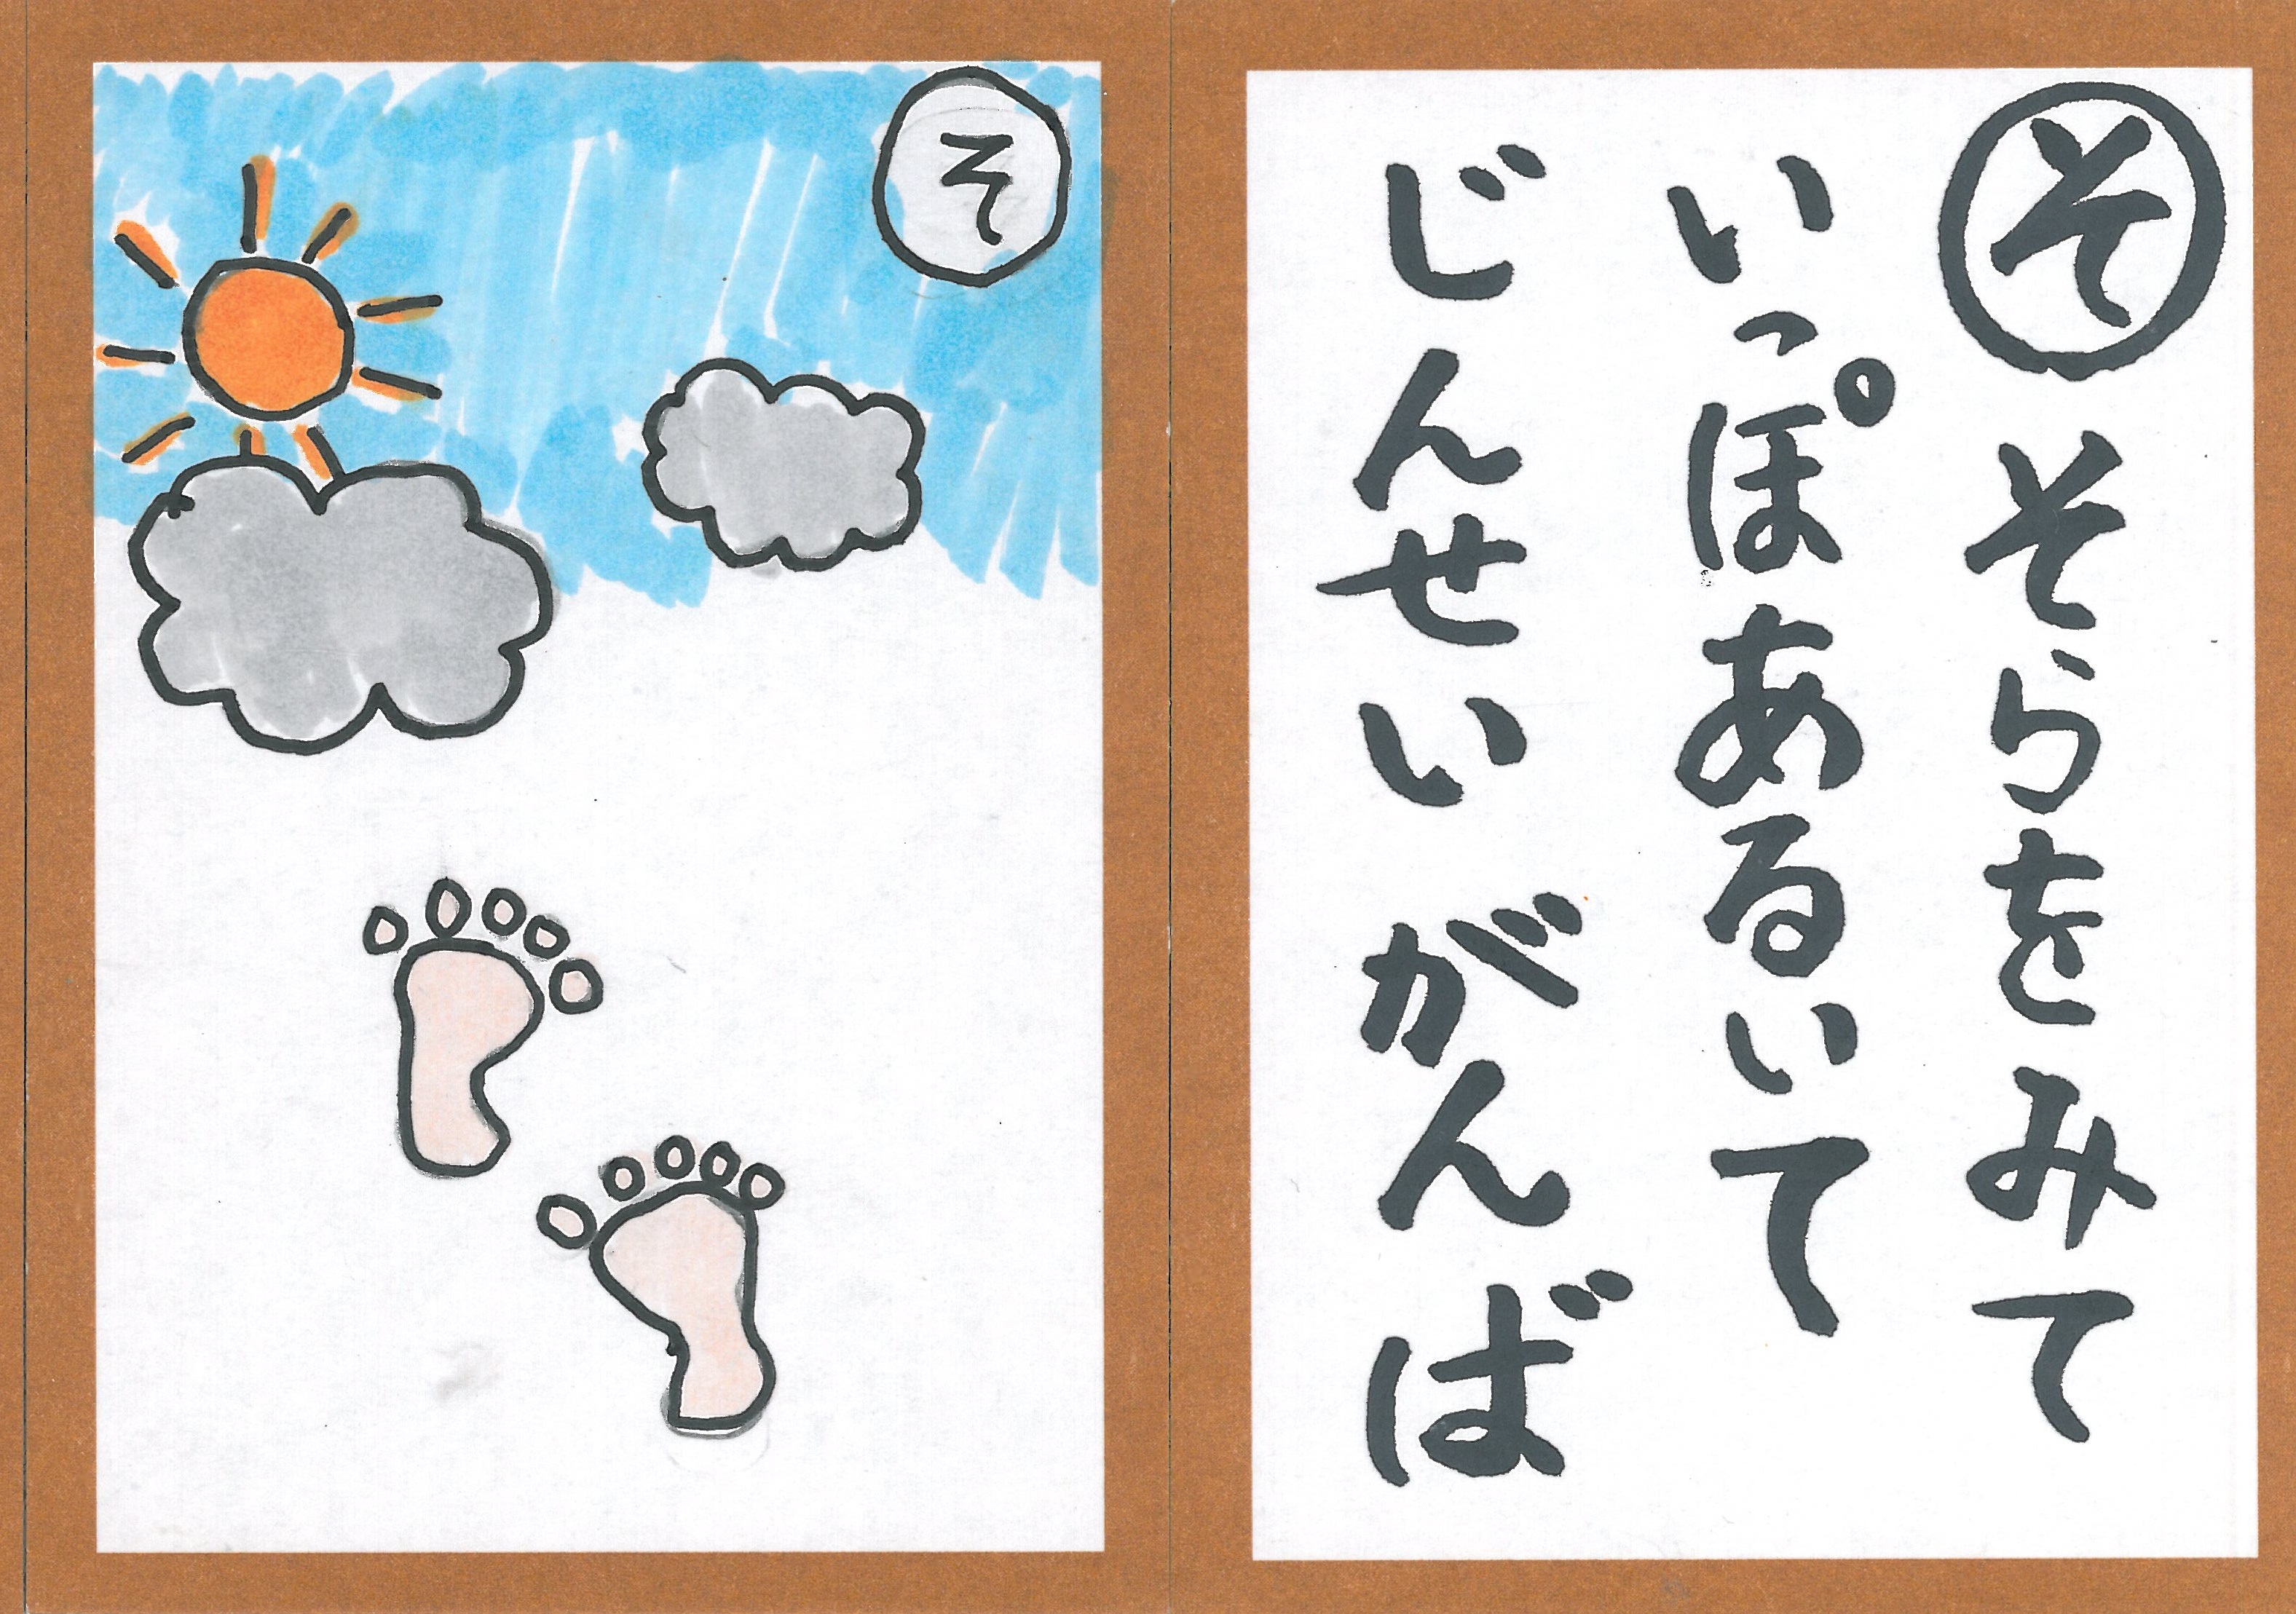 そ
そ そらをみて
いっぽあるいて
じんせいがんば